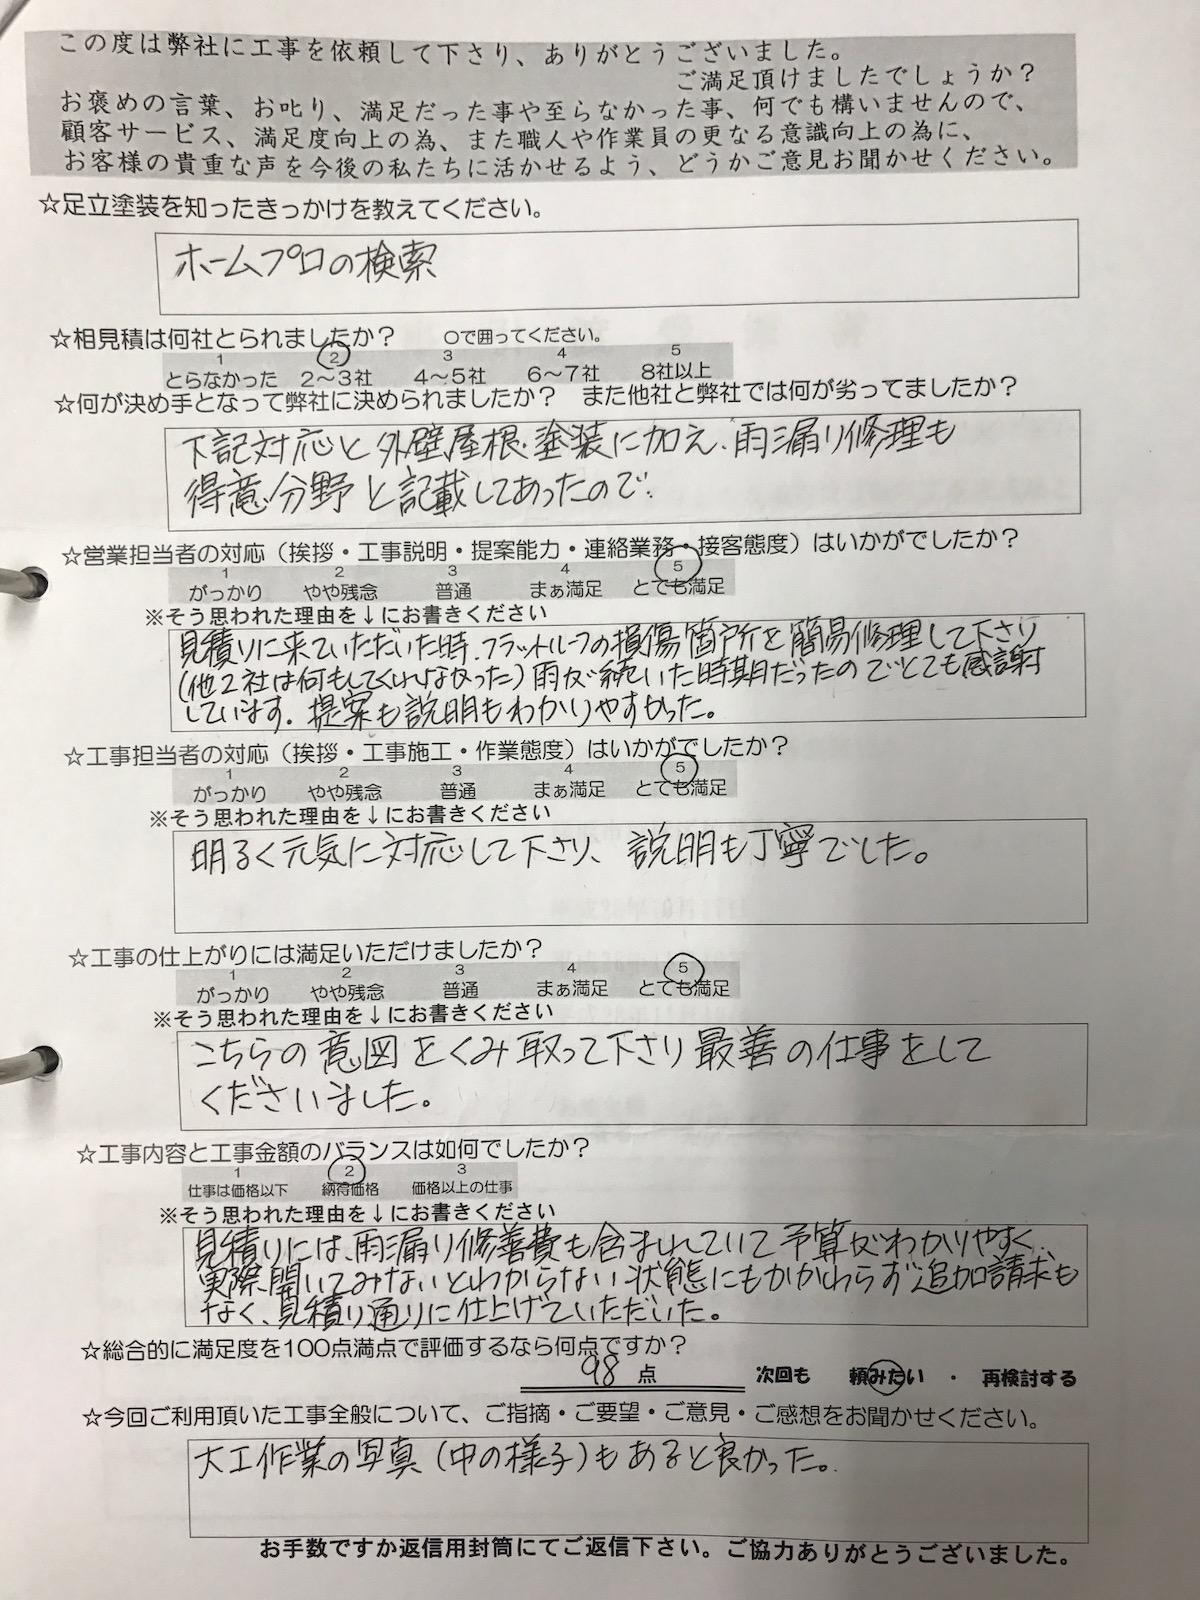 この度は弊社に工事を依頼して下さり、ありがとうございました。
ご満足頂けましたでしょうか？
お褒めの言葉、お叱り、満足だった事や至らなかった事、何でも構いませんので、
顧客サービス、満足度向上の為、また職人や作業員の更なる意識向上の為に、
お客様の貴重な声を今後の私たちに活かせるよう、どうかご意見お聞かせください。
☆足立塗装を知ったきっかけを教えてください。
ホームプロの検索
☆相見積は何社とられましたか？　〇で囲ってください。
1 2 3 4 5
とらなかった 2～3社 4～5社 6～7社 8社以上
☆何が決め手となって弊社に決められましたか？　また他社と弊社では何が劣ってましたか？
下記対応と外壁屋根、塗装に加え、雨漏り修理も
得意分野と記載してあったので、
☆営業担当者の対応（挨拶・工事説明・提案能力・連絡業務・接客態度）はいかがでしたか？
1 2 3 4 5
がっかり やや残念 普通 まぁ満足 とても満足
※そう思われた理由を↓にお書きください
見積りに来ていただいた時、フラットルーフの損傷箇所を簡易修理して下さり
（他2社は何もしてくれなかった）雨が続いた時期だったのでとても感謝
しています。提案も説明もわかりやすかった。
☆工事担当者の対応（挨拶・工事施工・作業態度）はいかがでしたか？
1 2 3 4 5
がっかり やや残念 普通 まぁ満足 とても満足
※そう思われた理由を↓にお書きください
明るく元気に対応して下さり、説明も丁寧でした。
☆工事の仕上がりには満足いただけましたか？
1 2 3 4 5
がっかり やや残念 普通 まぁ満足 とても満足
※そう思われた理由を↓にお書きください
こちらの意図をくみ取って下さり最善の仕事をして
くださいました。
☆工事内容と工事金額のバランスは如何でしたか？
1 2 3
仕事は価格以下 納得価格 価格以上の仕事
※そう思われた理由を↓にお書きください
見積りには、雨漏り修善費も含まれていて予算がわかりやすく、
実際開いてみないとわからない状態にもかかわらず追加請求も
なく、見積り通りに仕上げていただいた。
☆総合的に満足度を100点満点で評価するなら何点ですか？
98 点 次回も 頼みたい ・ 再検討する
☆今回ご利用頂いた工事全般について、ご指摘・ご要望・ご意見・ご感想をお聞かせください。
大工作業の写真（中の様子）もあると良かった。
お手数ですか返信用封筒にてご返信下さい。ご協力ありがとうございました。